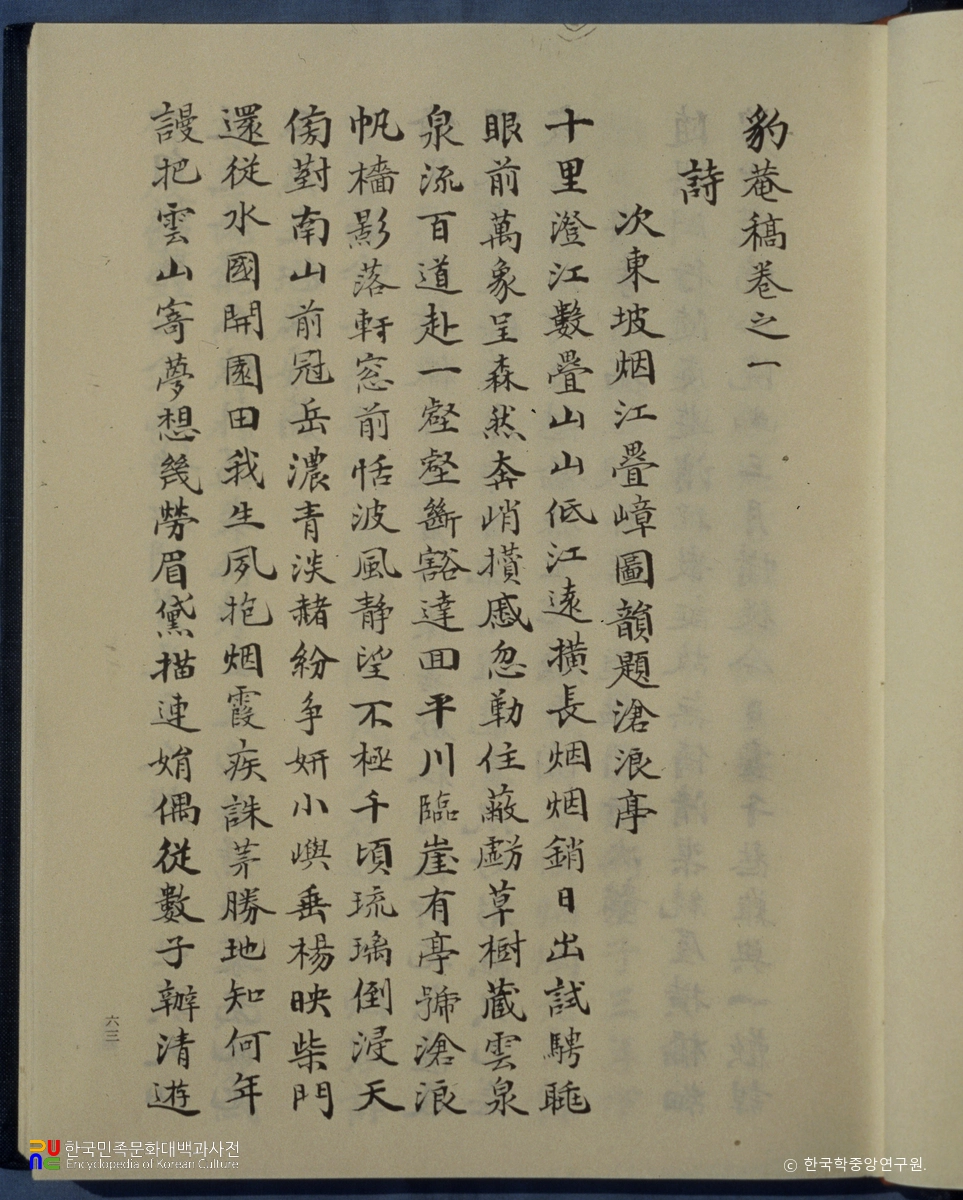 豹菴稿卷之一
詩
次東坡烟江疊嶂圖韻題滄浪亭
十里澄江數疊山山低江遠橫長烟烟銷日出試騁眺
眼前萬象呈森然奔峭攢蹙忽勒住蔽虧草樹藏雲泉
泉流百道赴一壑壑斷豁達回平川臨崖有亭號滄浪
帆檣影落軒窓前恬波風靜望不極千頃琉璃倒浸天
傍對南山前冠岳濃青淡赭紛爭姸小嶼垂楊映柴門
還從水國開園田我生夙抱烟霞疾誅茅勝地知何年
謾把雲山寄夢想幾勞眉黛描連娟偶從數子辦清遊
六三
한국민족문화대백과사전
Encyclopedia of Korean Culture
© 한국학중앙연구원.